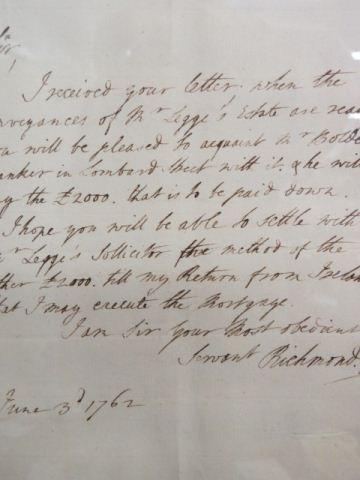 Sir,
I received your letter. when the
nveyances of Mr Legge's Estate are rea
ou will be pleased to acquaint Mr Bolde
anker in Lombard Street with it. & he will
y the £2000. that is to be paid down.
I hope you will be able to settle with
r Legge's Sollicitor the method of the
ther £2000. till my Return from Irelan
at I may execute the Mortgage.
I am Sir your Most obedient
Servant Richmond.
June 3d 1762